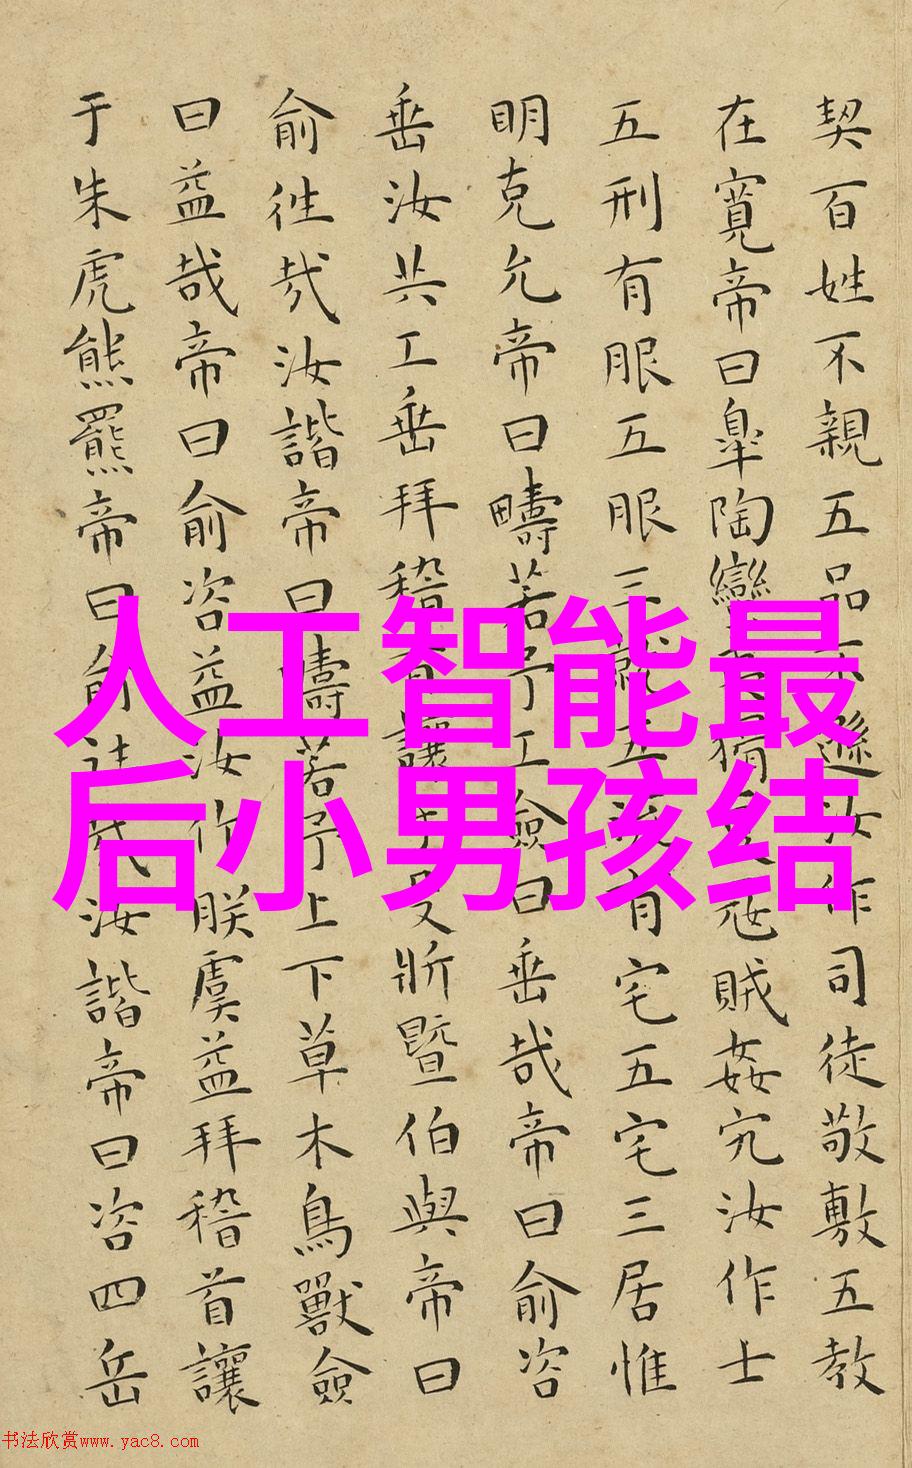 契百姓不親五品不遜汝作司徒敬敷五教
在寬帝曰皐陶蠻夷猾夏寇賊姦宄汝作士
五刑有服五服三就五流有宅五宅三居惟
明克允帝曰疇若予工僉曰垂哉帝曰俞咨
垂汝共工垂拜稽首讓于殳斨暨伯與帝曰
俞往哉汝諧帝曰疇若予上下草木鳥獸僉
曰益哉帝曰俞咨益汝作朕虞益拜稽首讓
于朱虎熊羆帝曰俞往哉汝諧帝曰咨四岳
人工智能最
后小男孩结
书法欣赏www.yac8.com